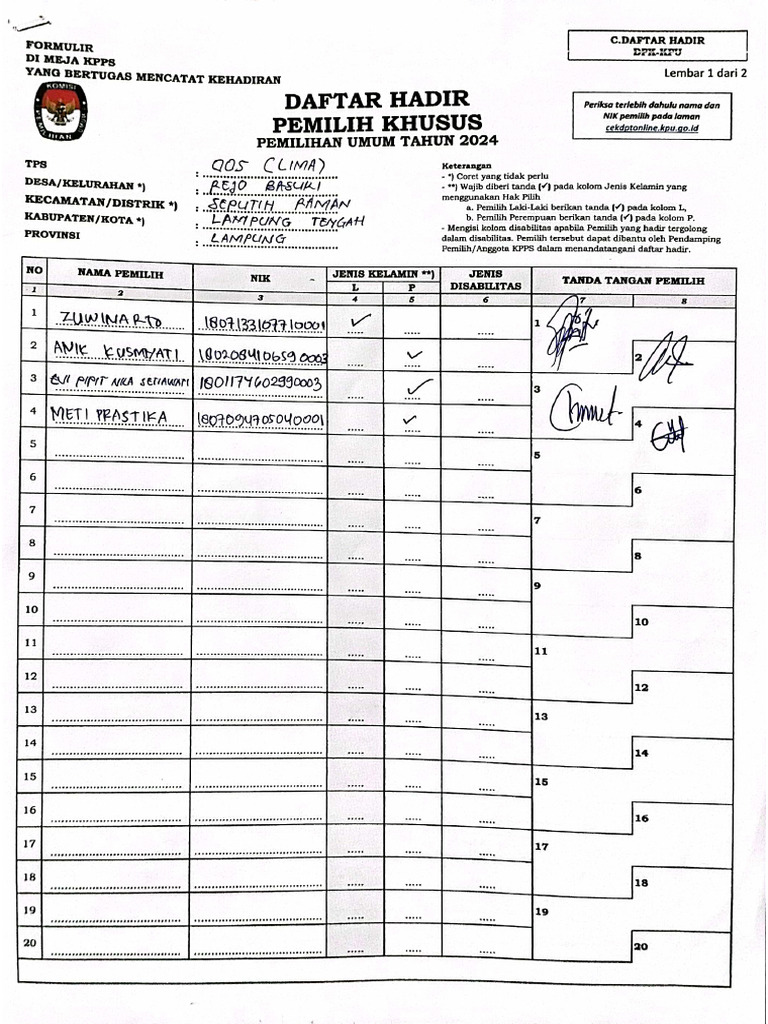 FORMULIR
DI MEJA KPPS
YANG BERTUGAS MENCATAT KEHADIRAN
C.DAFTAR HADIR
DPK-KPU
Lembar 1 dari 2
KOMISI
PEMILIHAN UMUM
DAFTAR HADIR
PEMILIH KHUSUS
PEMILIHAN UMUM TAHUN 2024
Periksa terlebih dahulu nama dan
NIK pemilih pada laman
cekdptonline.kpu.go.id
TPS : 005 (LIMA)
DESA/KELURAHAN *) : REJO BASUKI
KECAMATAN/DISTRIK *) : SEPUTIH RAMAN
KABUPATEN/KOTA *) : LAMPUNG TENGAH
PROVINSI : LAMPUNG
Keterangan
- *) Coret yang tidak perlu
- **) Wajib diberi tanda (✓) pada kolom Jenis Kelamin yang
menggunakan Hak Pilih
a. Pemilih Laki-Laki berikan tanda (✓) pada kolom L,
b. Pemilih Perempuan berikan tanda (✓) pada kolom P.
- Mengisi kolom disabilitas apabila Pemilih yang hadir tergolong
dalam disabilitas. Pemilih tersebut dapat dibantu oleh Pendamping
Pemilih/Anggota KPPS dalam menandatangani daftar hadir.
NO NAMA PEMILIH NIK JENIS KELAMIN **) JENIS DISABILITAS TANDA TANGAN PEMILIH
L P
1 2 3 4 5 6 7 8
1 ZUWINARTO 1807133107710001 ✓ 1
2 ANIK KUSMYATI 1802084106590003 ✓ 2
3 EVI PIPIT NIKA SETIAWATI 1801174602990003 ✓ 3
4 METI PRASTIKA 1807094705040001 ✓ 4
5 5
6 6
7 7
8 8
9 9
10 10
11 11
12 12
13 13
14 14
15 15
16 16
17 17
18 18
19 19
20 20